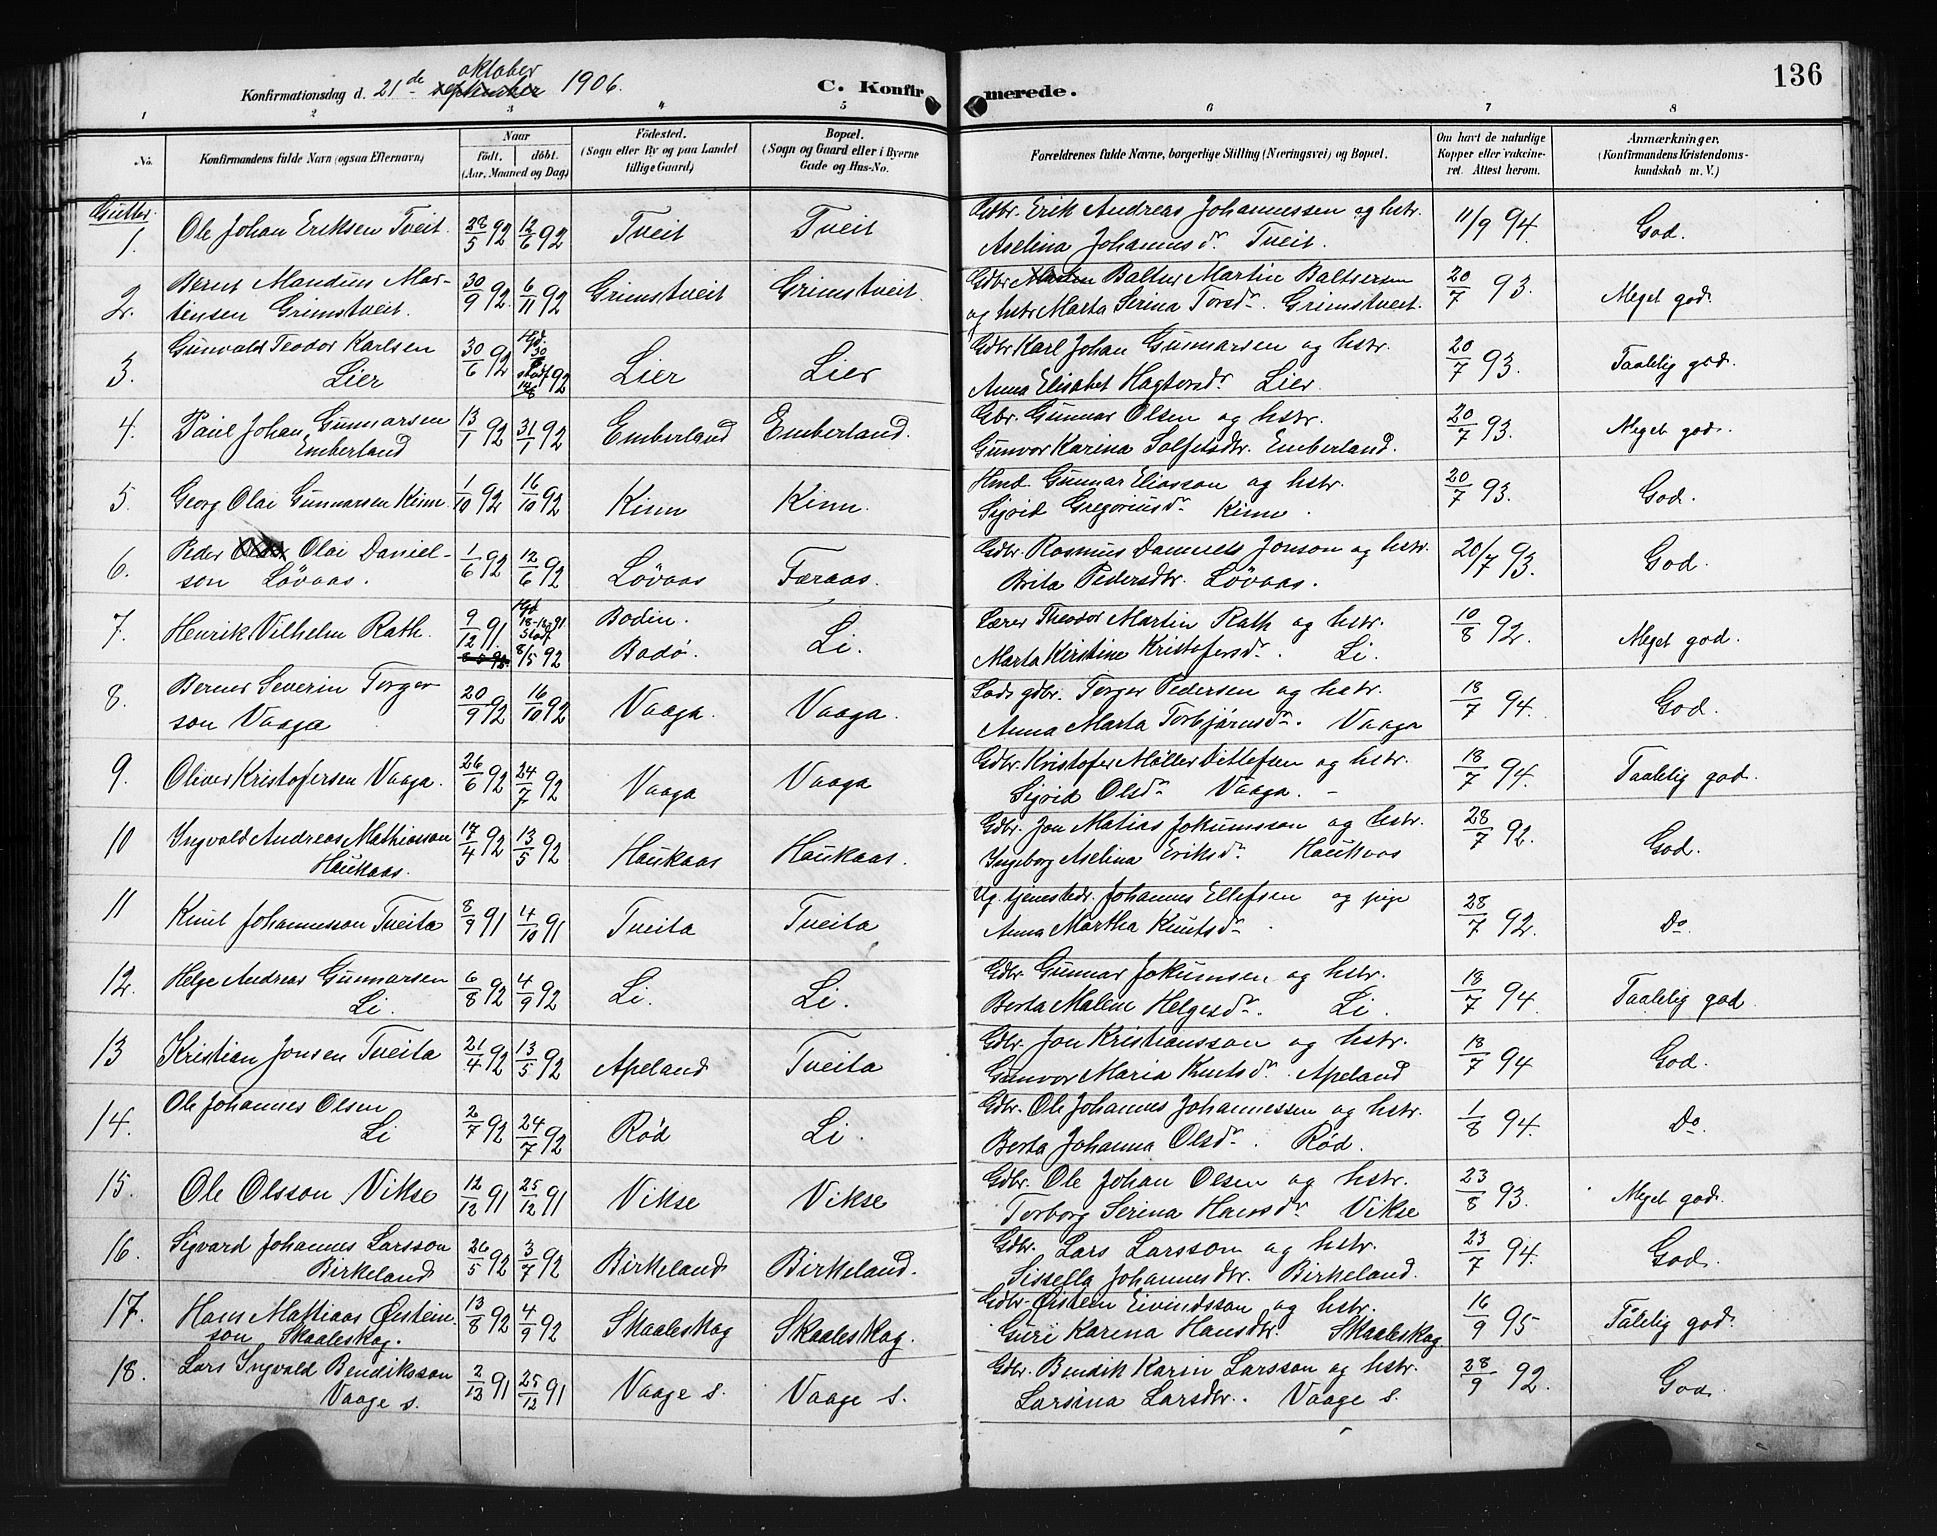 136
Konfirmationsdag d. 21de oktober september 1906.
C. Konfirmerede.
1 2 3 4 5 6 7 8
No. Konfirmandens fulde Navn (ogsaa Efternavn) Naar født. døbt. (Aar, Maaned og Dag) Födested. (Sogn eller By og paa Landet tillige Gaard) Bopæl. (Sogn og Gaard eller i Byerne Gade og Hus-No. Forældrenes fulde Navne, borgerlige Stilling (Næringsvei) og Bopæl. Om havt de naturlige Kopper eller vakcineret. Attest herom. Anmærkninger, (Konfirmandens Kristendomskundskab m. V.)
Gutter.
1. Ole Johan Eriksen Tveit. 28/5 92 12/6 92 Tveit Tveit Gdbr. Erik Andreas Johannessen og hstr. 11/9 94. God.
Aselina Johannesdr. Tveit.
2. Bernt Mandius Mar- 30/9 92. 6/11 92 Grimstveit Grimstveit. Gdbr. Baltser Martin Baltsersen 20/7 93. Meget god.
tinsen Grimstveit. og hstr. Marta Serina Torsdr. Grimstveit.
3. Gunvald Teodor Karlsen 30/6 92 Hjd. 30/6 stadf. 14/8 92 Lier Lier Gdbr Karl Johan Gunnarsen og hstr. 20/7 93. Taalelig god.
Lier Anna Elisabet Hagtorsdr. Lier.
4. Paul Johan Gunnarsen 13/1 92 31/1 92 Emberland Emberland. Gbr. Gunnar Olsen og hstr. 20/7 93. Meget god.
Emberland Gunvor Karina Solfestsdtr. Emberland.
5. Georg Olai Gunnarsen Kinn 1/10 92 16/10 92 Kinn Kinn. Hmd. Gunnar Eliasson og hstr. 20/7 93. God.
Sigrid Gregoriusdr. Kinn.
6. Peder Olai Daniel- 1/6 92 12/6 92 Løvaas Færaas. Gdbr. Rasmus Daniels Jonson og hstr. 20/7 93. God.
son Løvaas. Brita Pedersdtr. Løvaas.
7. Henrik Vilhelm Rath. 9/12 91 Hjd 18-12 91 Stadf. 8/5 92 Bodin. Bodø. Li. Lærer Theodor Martin Rath og hstr. 10/8 92. Meget god.
Marta Kirstine Kristofersdr. Li.
8. Berner Severin Torger- 20/9 92 16/10 92 Vaaga. Vaaga. Gdbr. Torger Pedersen og hstr. 18/7 94. God.
son Vaaga Anna Marta Torbjørnsdr. Vaaga
9. Oliver Kristofersen Vaaga. 26/6 92 24/7 92 Vaaga Vaaga Gdbr. Kristofer Møller Ditlefsen og hstr. 18/7 94. Taalelig god.
Sigrid Olsdr. Vaaga.
10 Yngvald Andreas Mathiasson 17/4 92 13/5 92 Haukaas Haukaas. Gdbr. Jon Matias Jokumsson og hstr. 28/7 92. God.
Haukaas. Ingeborg Aselina Eriksdr. Haukaas
11 Knut Johannesson Tveita 8/9 91 4/10 91 Tveita Tveita Ug. tjenestedr. Johannes Ellefsen og pige 28/7 92. Do
Anna Martha Knutsdr.
12. Helge Andreas Gunnarsen 6/8 92 4/9 92 Li. Li. Gdbr. Gunnar Jokumsen og hstr. 18/7 94. Taalelig god.
Li. Berta Malene Helgesdr. Li.
13 Kristian Jonsen Tveita 21/4 92 13/5 92 Apeland Tveita Gdbr. Jon Kristiansson og hstr. 18/7 94 God.
Gunvor Maria Knutsdr. Apeland
14. Ole Johannes Olsen 2/7 92 24/7 92 Rød Li. Gdbr. Ole Johannes Johannessen og hstr. 1/8 94. Do.
Li Berta Johanna Olsdr. Rød.
15. Ole Olsson Vikse 12/12 91 25/12 91 Vikse Vikse Gdbr. Ole Johan Olsen og hstr. 23/8 93. Meget god.
Torborg Serina Hansdr. Vikse
16. Sigvard Johannes Larsson 26/5 92 3/7 92 Birkeland Birkeland. Gdbr. Lars Larsson og hstr. 23/7 94. God.
Birkeland Sissella Johannesdtr. Birkeland.
17. Hans Mathias Øistein- 13/8 92 4/9 92 Skaaleskog Skaaleskog. Gdbr. Øistein Eivindsson og hstr. 16/9 95 Tålelig god.
son Skaaleskog. Guri Karina Hansdtr. Skaaleskog
18. Lars Yngvald Bendiksson 2/12 91 25/12 91 Vaage s. Vaage s. Gdbr. Bendik Karin Larsson og hstr. 28/9 92. God.
Vaage s. Larsina Larsdtr. Vaage s.